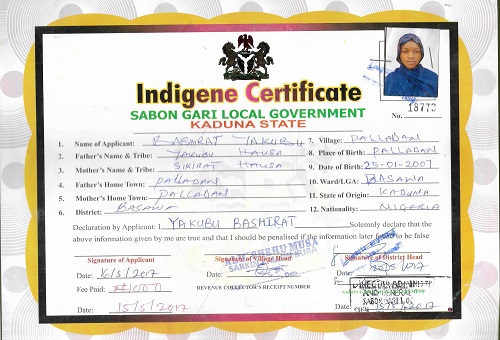 Indigene Certificate
SABON GARI LOCAL GOVERNMENT
KADUNA STATE
No. 18773
1. Name of Applicant: BASHIRAT YAKUBU
2. Father's Name & Tribe: YAKUBU HAUSA
3. Mother's Name & Tribe: SIKIRAT HAUSA
4. Father's Home Town: PALLADAN
5. Mother's Home Town: PALLADAN
6. District: BASAWA
7. Village: PALLADAN
8. Place of Birth: PALLADAN
9. Date of Birth: 25-01-2007
10. Ward/LGA: BASAWA
11. State of Origin: KADUNA
12. Nationality: NIGERIA
Declaration by Applicant: I YAKUBU BASHIRAT Solemnly declare that the
above information given by me are true and that I should be penalised if the information later found to be false
SHEHU MUSA
SARKIN
Signature of Applicant
Signature of Village Head
Signature of District Head
Date: 16/5/2017
Date:
Date: 2017
Fee Paid: ₦1000
REVENUE COLLECTOR'S RECEIPT NUMBER
15/5/2017
DIRECTOR ADMIN
AND GENERAL
SABON GARI LG
SIGN
Date: 15/5/2017